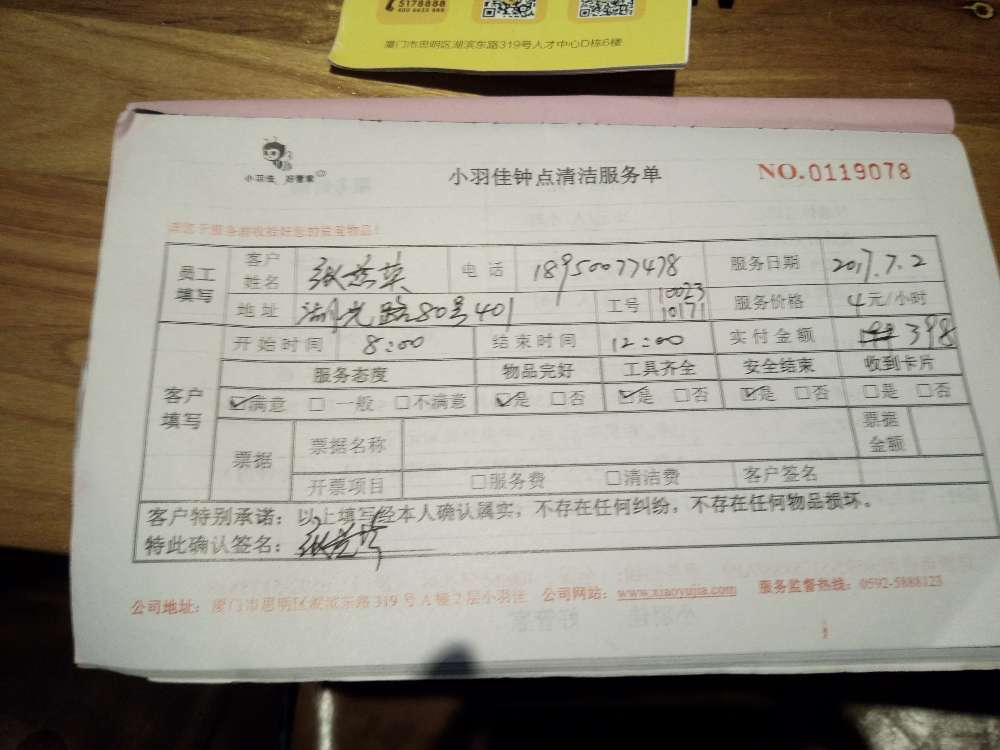 5178888
400 6633 888
厦门市思明区湖滨东路319号人才中心D栋6楼
小羽佳 好管家
小羽佳钟点清洁服务单
NO.0119078
员工填写 客户姓名 电话 18950077478 服务日期 2017.7.2
地址 湖光路80号401 工号 10023 10171 服务价格 4元/小时
客户填写 开始时间 8:00 结束时间 12:00 实付金额 398
服务态度 物品完好 工具齐全 安全结束 收到卡片
☑满意 □一般 □不满意 ☑是 □否 ☑是 □否 ☑是 □否 □是 □否
票据 票据名称 票据金额
开票项目 □服务费 □清洁费 客户签名
客户特别承诺：以上填写经本人确认属实，不存在任何纠纷，不存在任何物品损坏。
特此确认签名：
公司地址：厦门市思明区湖滨东路319号A楼2层小羽佳 公司网站：www.xiaoyujia.com 服务监督热线：0592-5888123